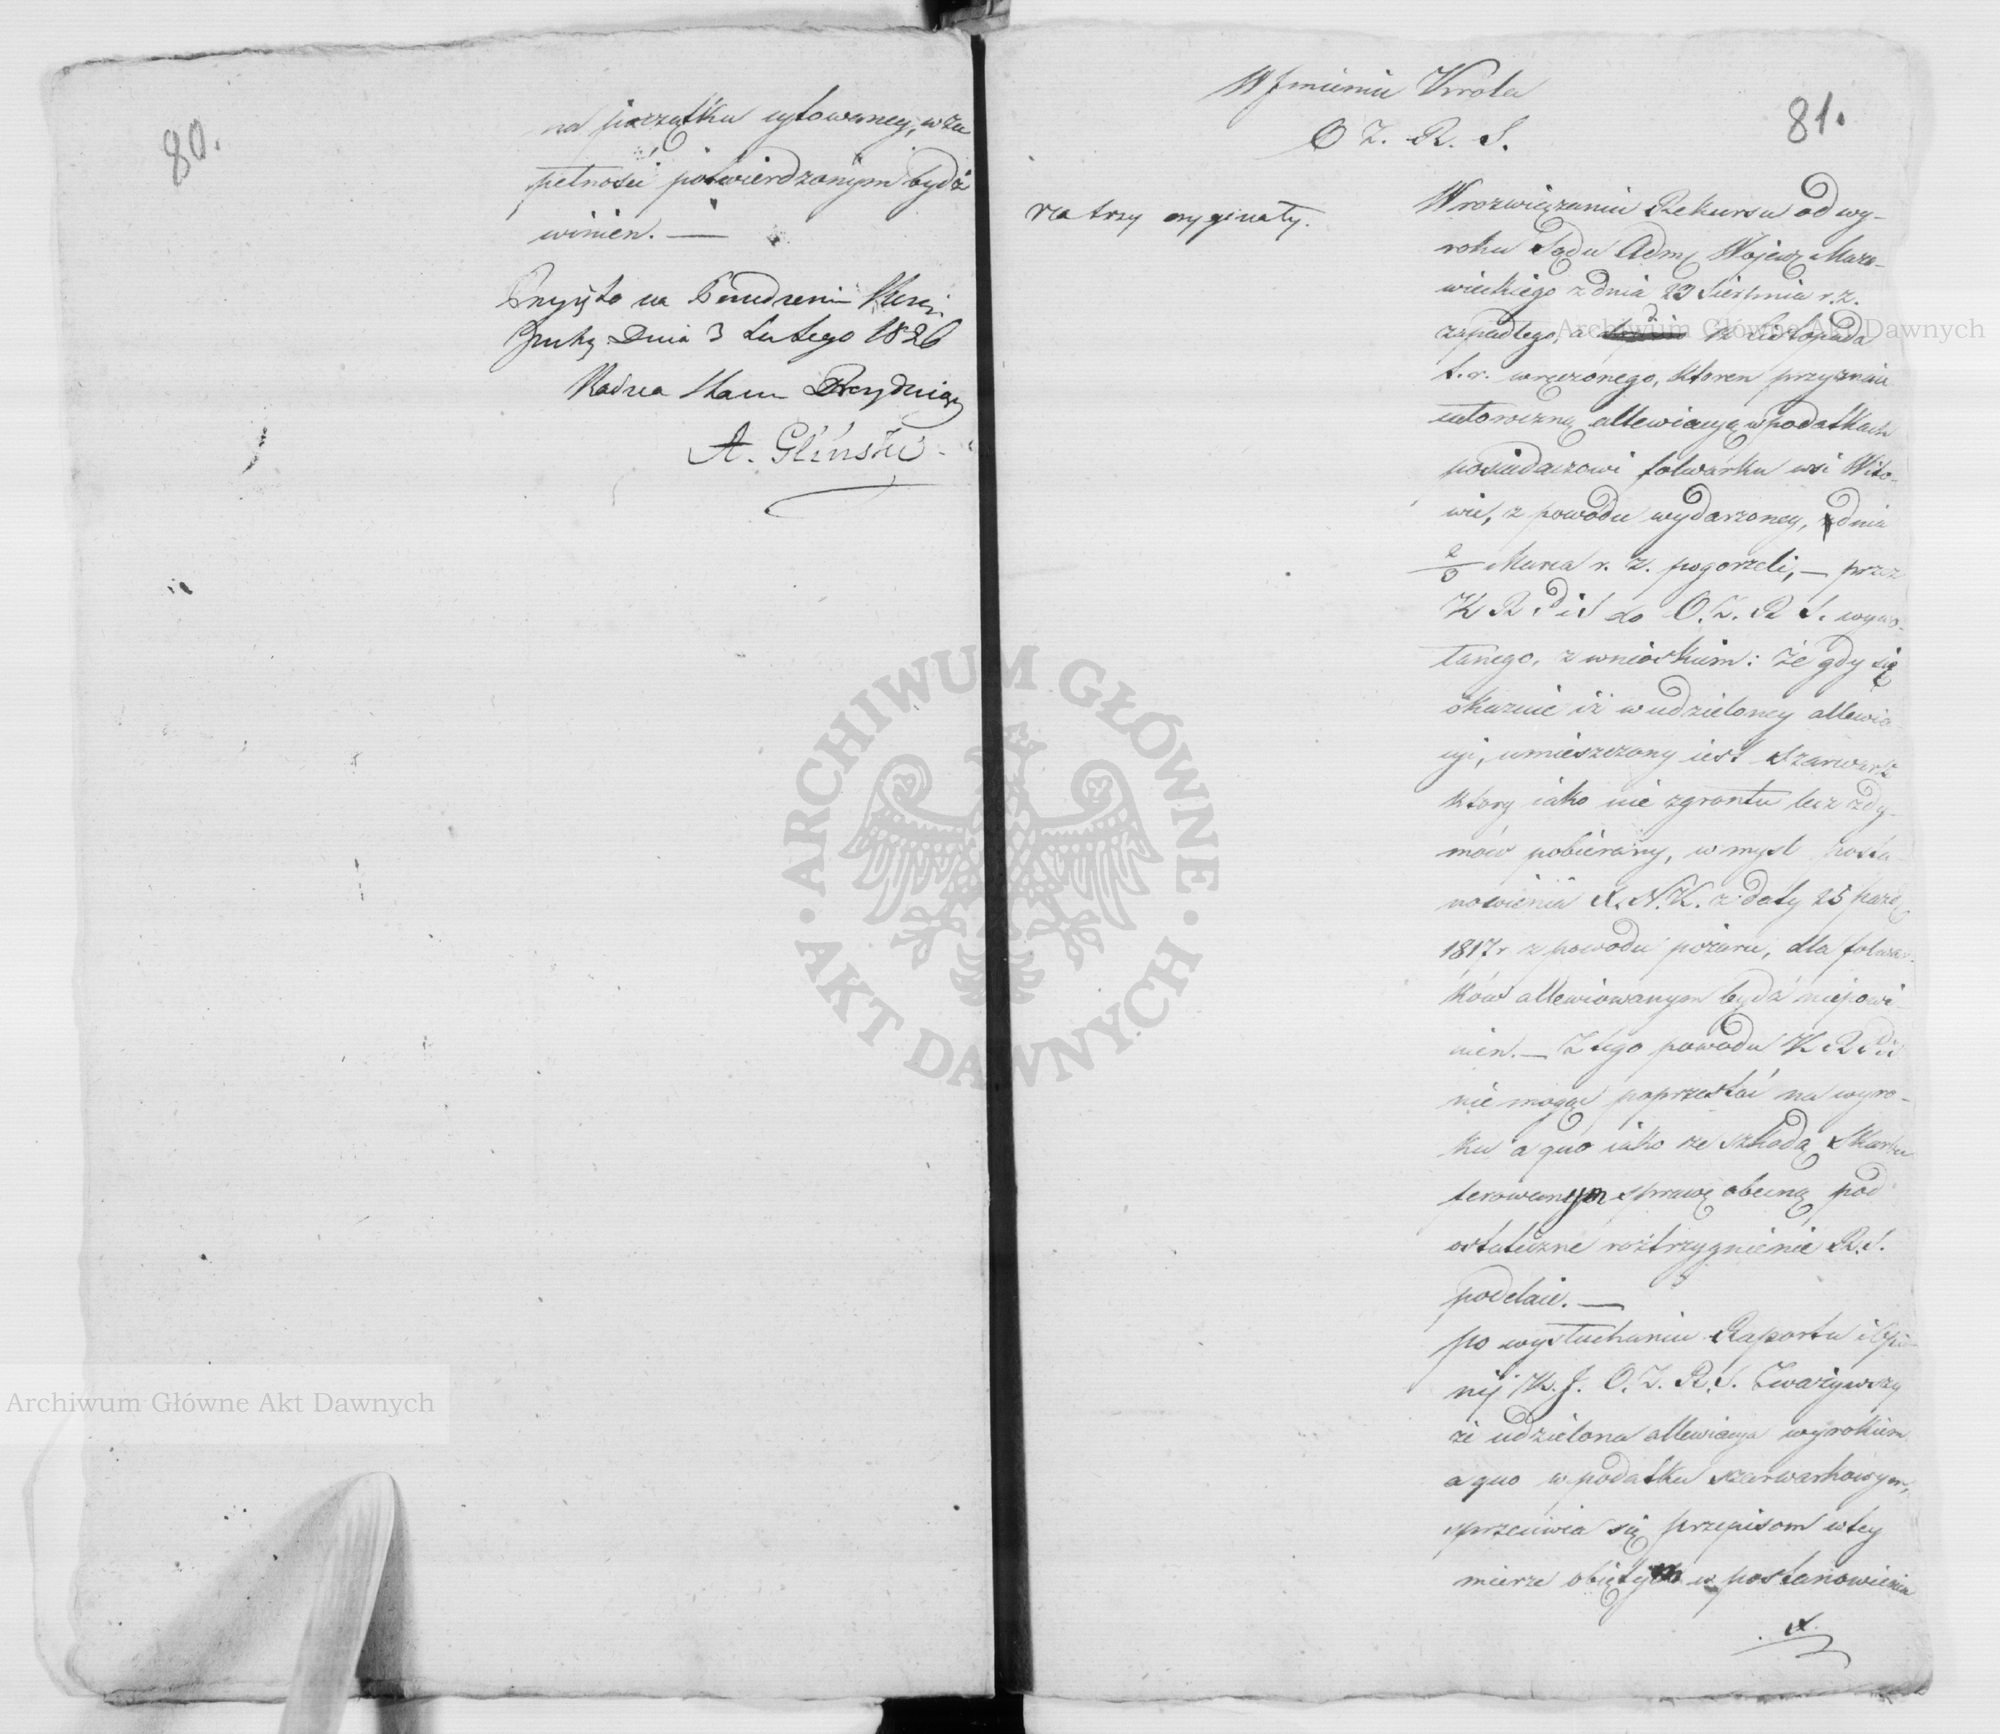 80.
na początku cytowaney, w zu
pełności potwierdzonym bydź
winien. —
Przyięto na Posiedzeniu
Dnia 3 Lutego 1826
Radca Stanu Prezyduiący
A. Gliński
81.
W Jmieniu Króla
O Z. R. S.
na trzy oryginały.
W rozwiązaniu Rekursu od wy-
roku Sądu Adm Wojew: Mazo-
wieckiego z dnia 23 Sierpnia r. z.
zapadłego, a d. 12 Listopada
t. r. wręczonego, ktoren przyznaie
alleviacyą w podatkach
posiadaczowi folwarku wsi Wito-
wie, z powodu wydarzoney, z dnia
2/3 Marca r. z. pogorzeli, — przez
K R P i S do O. Z. R S. wywo-
łanego, z wnioskiem: że gdy się
okazuie iż w udzieloney allewia
cyi, umieszczony iest szarwark
ktory iako nie z gruntu lecz z dy-
mów pobierany, w myśl Posta-
nowienia X. N. K. z daty 25 Paźd
1817 r z powodu pożaru, dla folwar-
ków allewiowanym bydź niepowi-
nien. — Z tego powodu K R P i S
nie mogąc poprzestać na wyro-
ku a quo iako ze szkodą Skarbu
ferowanym sprawę obecną pod
ostateczne rozstrzygnienie R. S.
poddaie. —
po wysłuchaniu Raportu i Opi-
nij K. J. O. Z. R. S. Zważywszy
że udzielona allewiacya wyrokiem
a quo w podatku szarwarkowym,
sprzeciwia się przepisom w tey
mierze obiętym w postanowieniu
X.
Archiwum Główne Akt Dawnych
Archiwum Główne Akt Dawnych
ARCHIWUM GŁÓWNE
AKT DAWNYCH